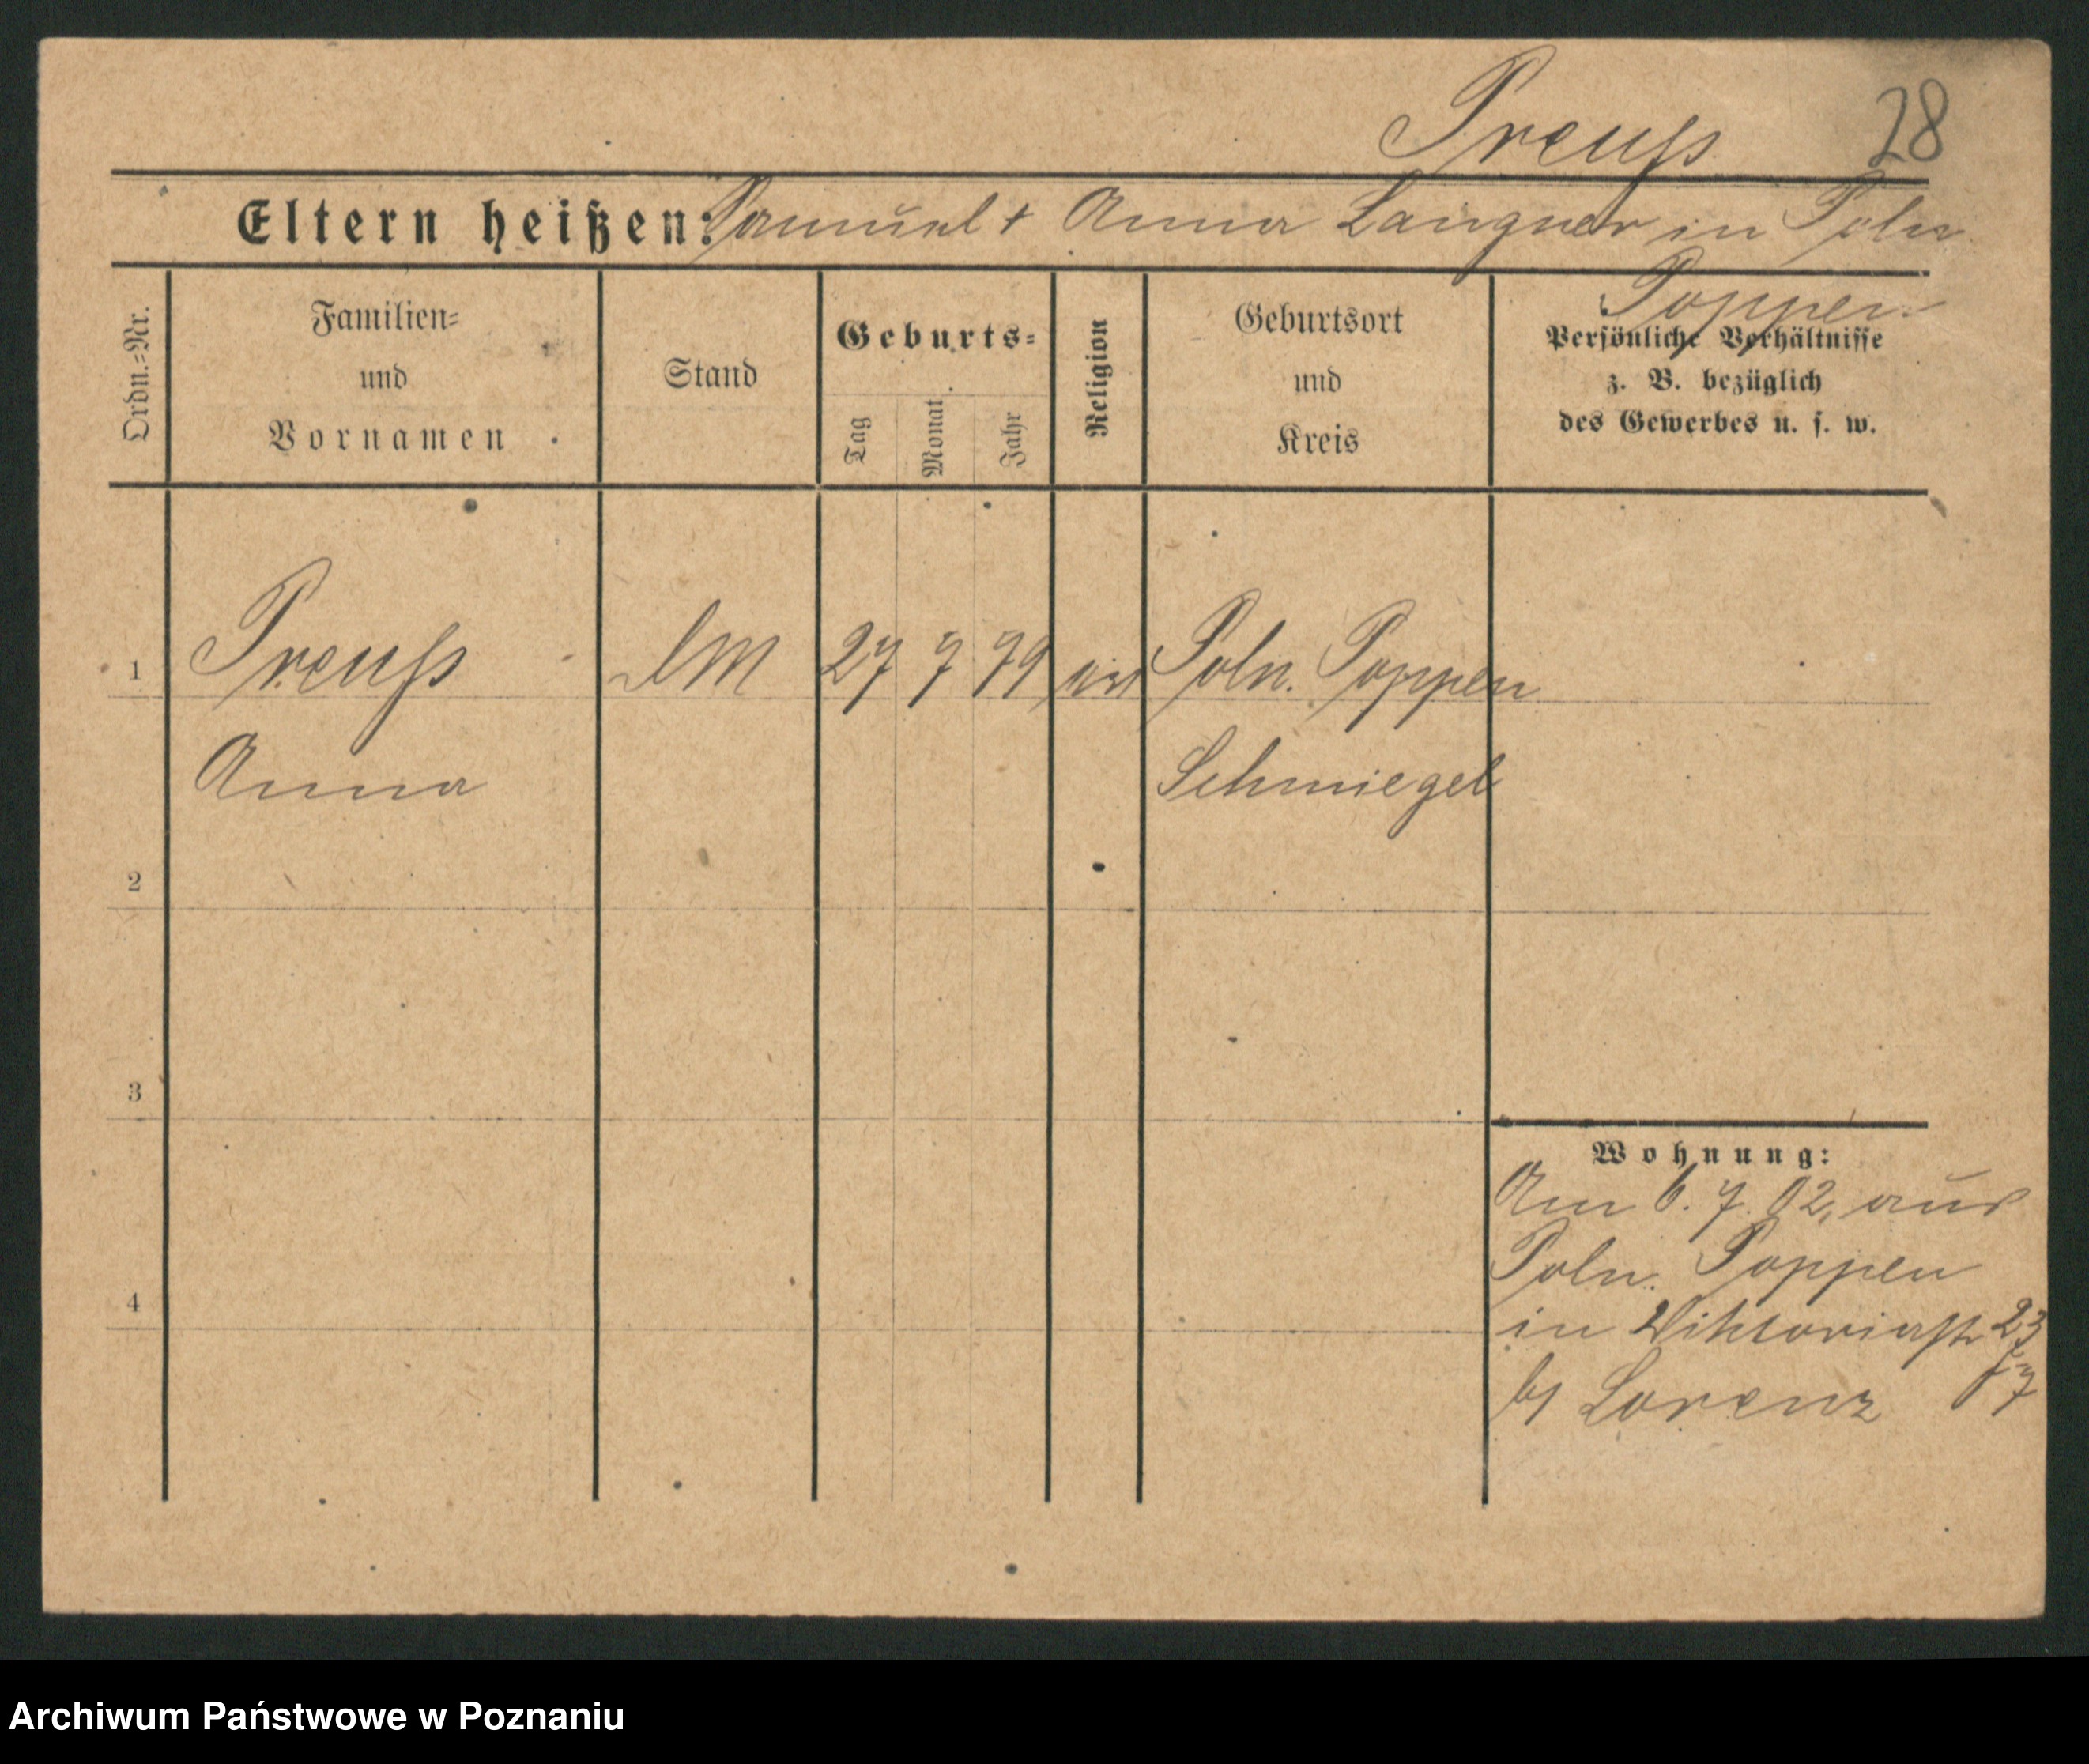 Preuß 28
Eltern heißen: Samuel + Anna Langner in Poln
Poppen
Ordn.=Nr.
Familien=
und
Vornamen
Stand
Geburts=
Tag
Monat
Jahr
Religion
Geburtsort
und
Kreis
Persönliche Verhältnisse
z. B. bezüglich
des Gewerbes u. s. w.
1 Preuß DM 27 7 79 ev Poln. Poppen
Anna Schmiegel
2
3
Wohnung:
Am 6. 7. 02, aus
Poln. Poppen
4
in Viktoriastr 23
b/ Lorenz
Archiwum Państwowe w Poznaniu